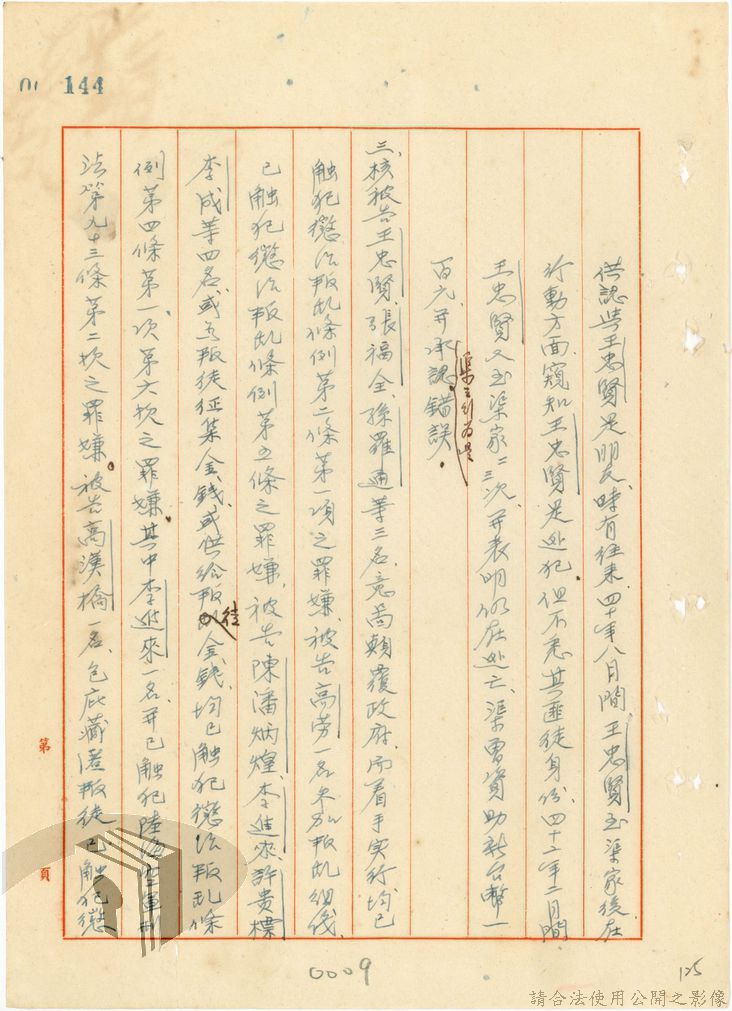 144
供認與王忠賢是朋友時有往來、四十年八月間、王忠賢至渠家後在
行動方面窺知王忠賢是逃犯但不悉其匪徒身份、四十二年二月間
王忠賢又至渠家二三次、并表明仍在逃亡、渠曾資助新台幣一
百元并承認錯誤
三、核被告王忠賢、張福全、孫羅通等三名、意啚顛覆政府、而着手实行均已
触犯懲治叛乱條例第二條第一項之罪嫌、被告高劳一名参加叛乱組織、
已触犯懲治叛乱條例第五條之罪嫌、被告陳潘炳煌、李進來、許贵標
李成華四名、或為叛徒征集金錢、或供给叛徒金錢、均已触犯懲治叛乱條
例第四條第一項第六欵之罪嫌其中李進來一名、并已触犯陸海空軍刑
法第九十三條第二欵之罪嫌。被告高漢橋一名、包庇藏匿叛徒已触犯懲
第
頁
0009
125
請合法使用公開之影像